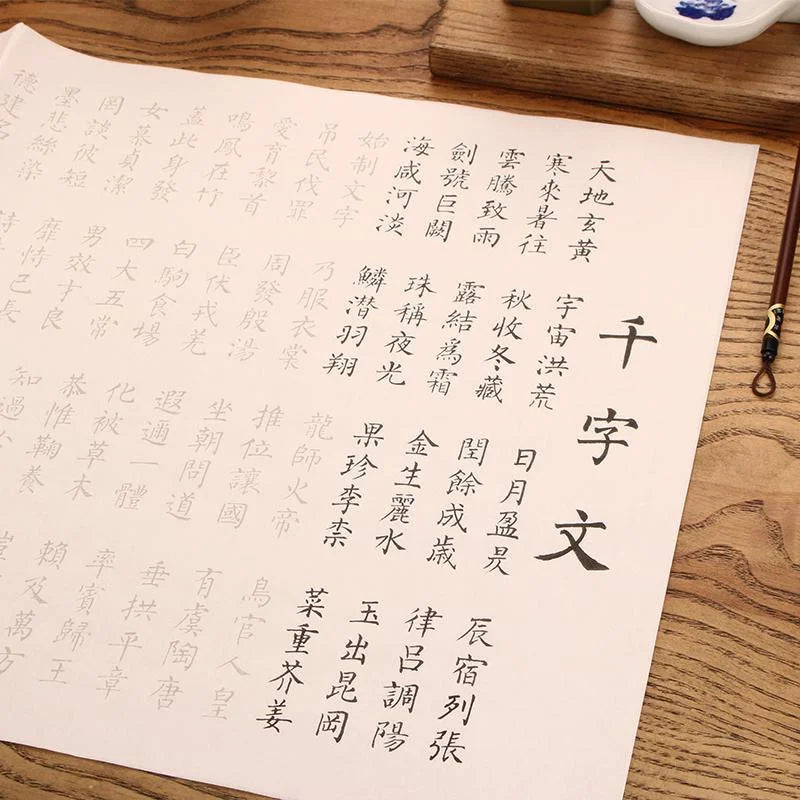 千字文
天地玄黃 宇宙洪荒 日月盈昃 辰宿列張
寒來暑往 秋收冬藏 閏餘成歲 律呂調陽
雲騰致雨 露結爲霜 金生麗水 玉出昆岡
劍號巨闕 珠稱夜光 果珍李柰 菜重芥姜
海咸河淡 鱗潛羽翔 龍師火帝 鳥官人皇
始制文字 乃服衣裳 推位讓國 有虞陶唐
吊民伐罪 周發殷湯 坐朝問道 垂拱平章
愛育黎首 臣伏戎羌 遐邇一體 率賓歸王
鳴鳳在竹 白駒食場 化被草木 賴及萬方
蓋此身發 四大五常 恭惟鞠養
女慕貞潔 男效才良 知過
罔談彼短 靡恃己長
墨悲絲染 詩
德建名